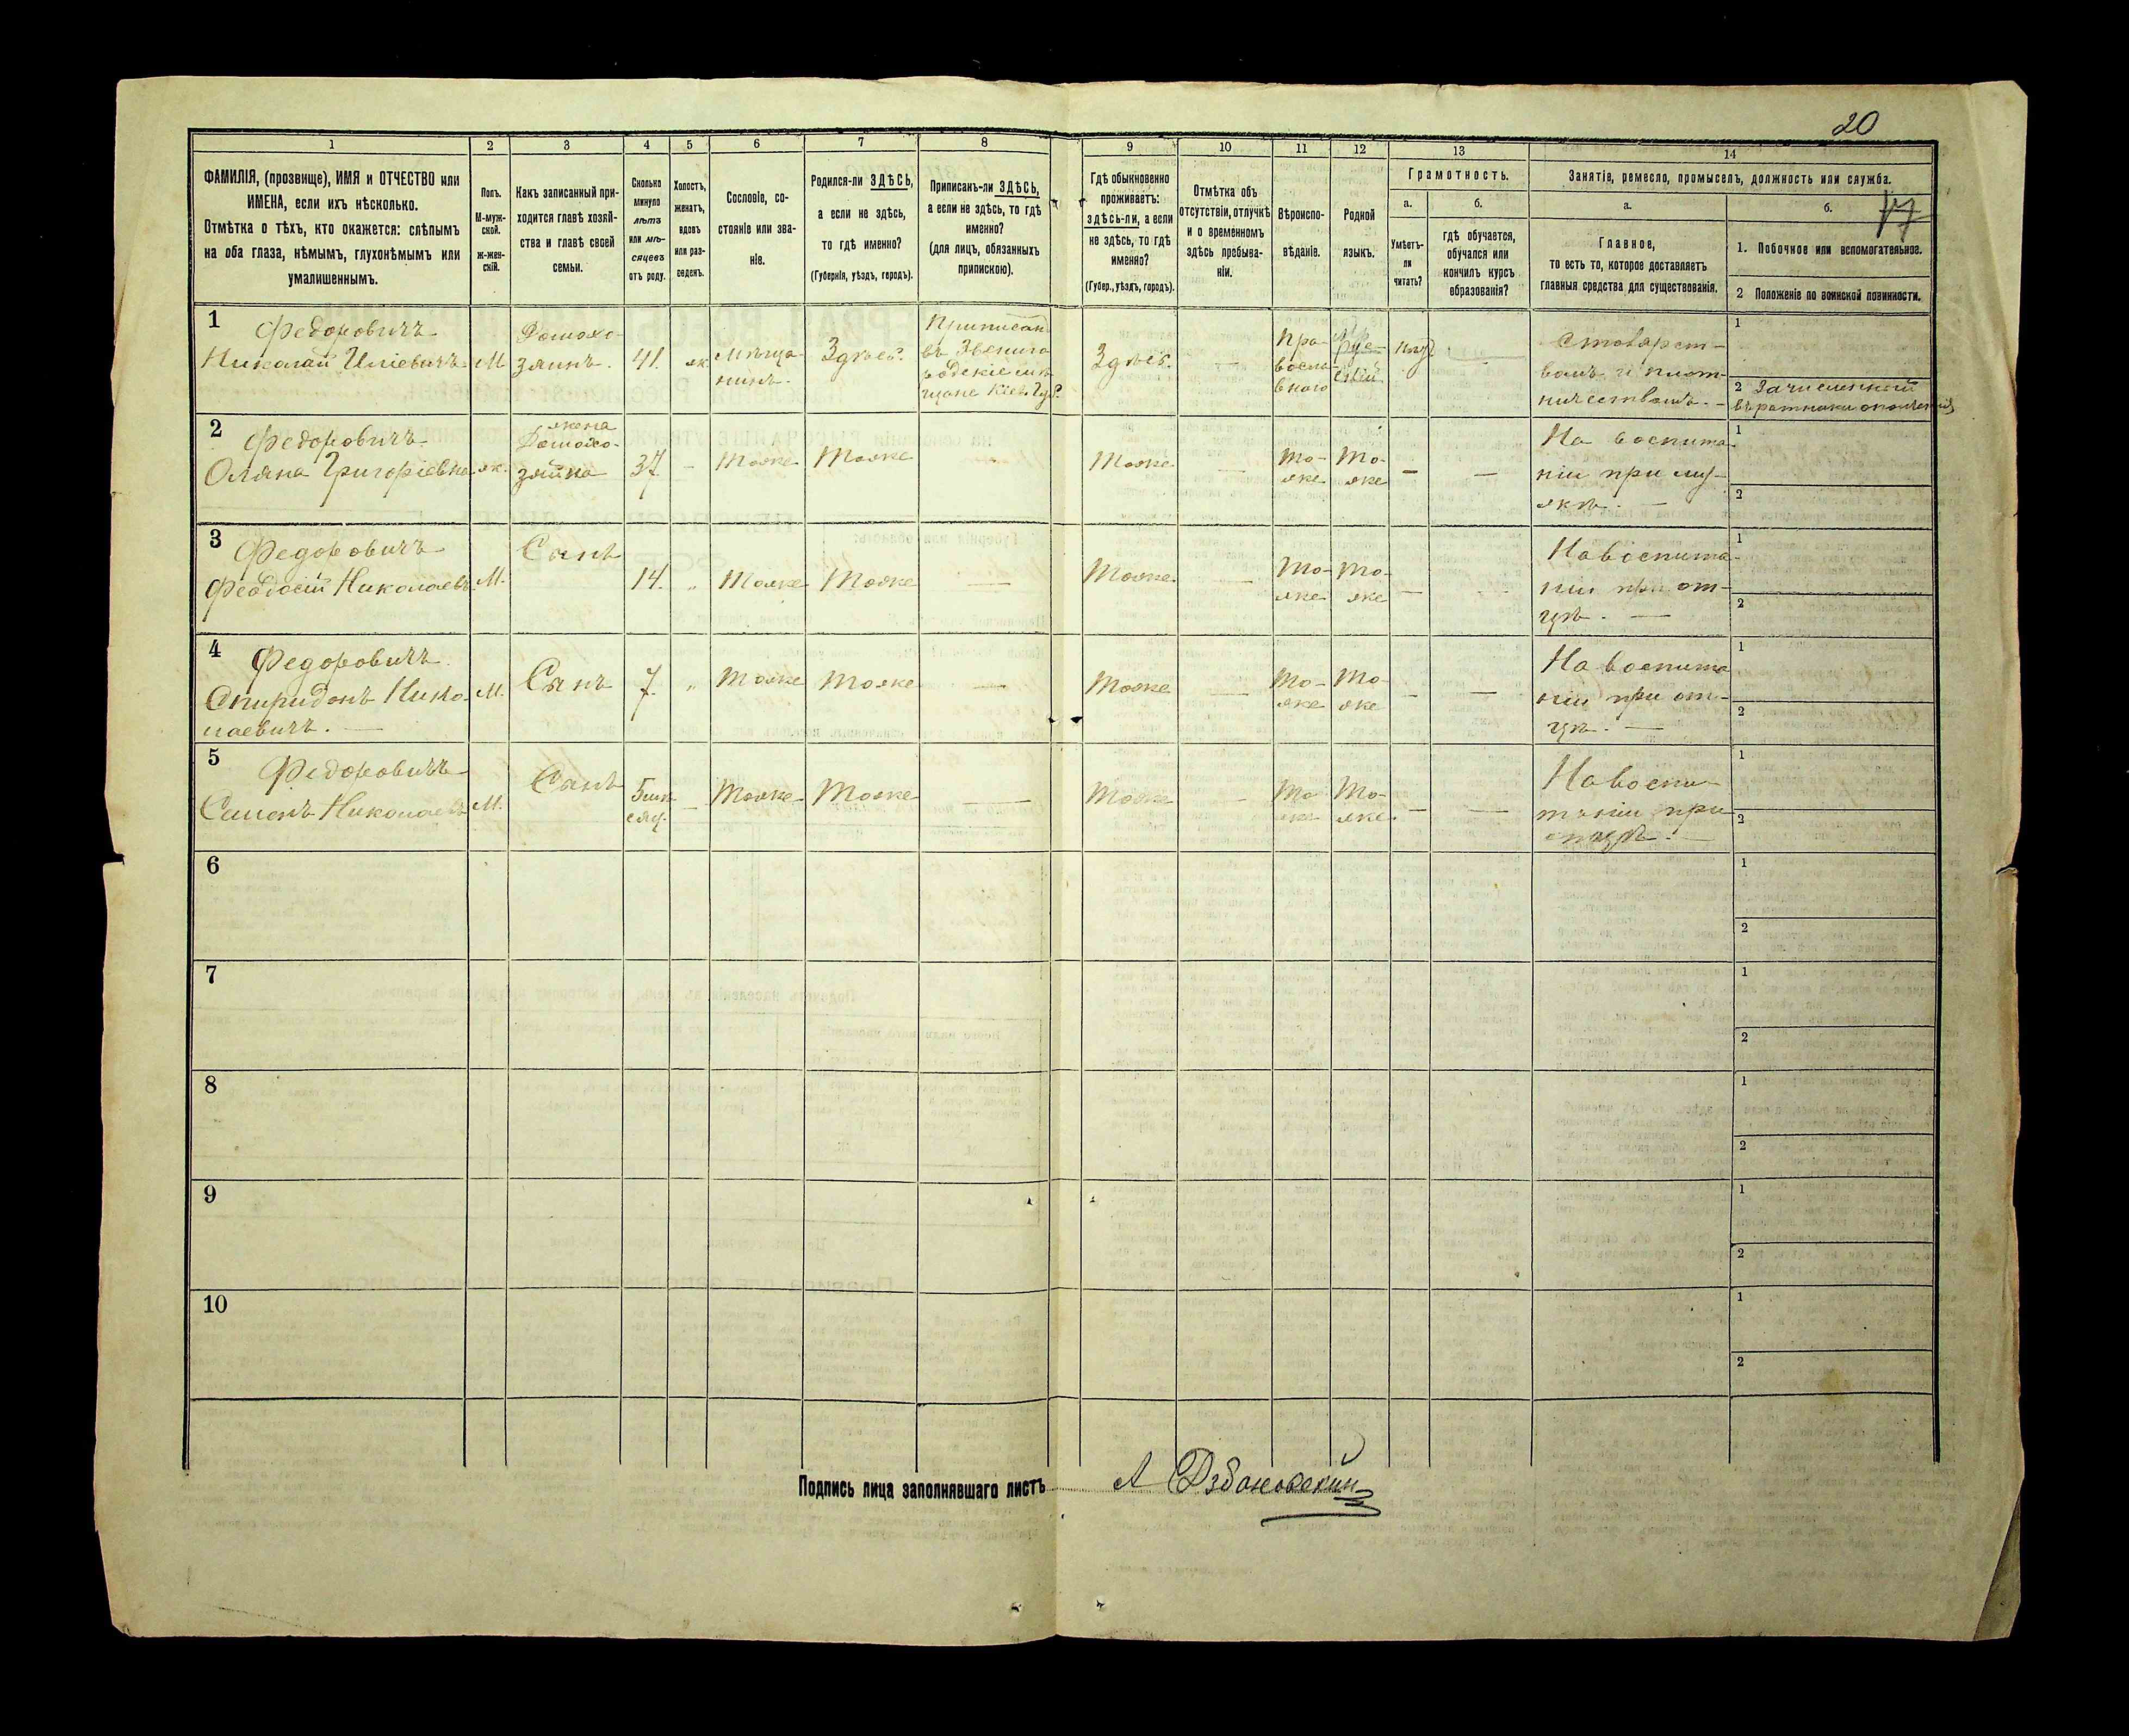 20
1 2 3 4 5 6 7 8 9 10 11 12 13 14
ФАМИЛІЯ, (прозвище), ИМЯ и ОТЧЕСТВО или
ИМЕНА, если ихъ нѣсколько.
Отмѣтка о тѣхъ, кто окажется: слѣпымъ
на оба глаза, нѣмымъ, глухонѣмымъ или
умалишеннымъ.
Полъ.
М-муж-
ской.
ж-жен-
скій.
Какъ записанный при-
ходится главѣ хозяй-
ства и главѣ своей
семьи.
Сколько
минуло
лѣтъ
или мѣ-
сяцевъ
отъ роду.
Холостъ,
женатъ,
вдовъ
или раз-
веденъ.
Сословіе, со-
стояніе или зва-
ніе.
Родился-ли ЗДѢСЬ,
а если не здѣсь,
то гдѣ именно?
(Губернія, уѣздъ, городъ).
Приписанъ-ли ЗДѢСЬ,
а если не здѣсь, то гдѣ
именно?
(для лицъ, обязанныхъ
припискою).
Гдѣ обыкновенно
проживаетъ:
здѣсь-ли, а если
не здѣсь, то гдѣ
именно?
(Губер., уѣздъ, городъ).
Отмѣтка объ
отсутствіи, отлучкѣ
и о временномъ
здѣсь пребыва-
ніи.
Вѣроиспо-
вѣданіе.
Родной
языкъ.
Грамотность.
а.
Умѣетъ-
ли
читать?
б.
гдѣ обучается,
обучался или
кончилъ курсъ
образованія?
Занятіе, ремесло, промыселъ, должность или служба.
а.
Главное,
то есть то, которое доставляетъ
главныя средства для существованія.
б.
17
1. Побочное или вспомогательное.
2 Положеніе по воинской повинности.
1
Федоровичъ
Николай Иліевичъ
М
Домохо-
зяинъ.
41.
ж.
Мѣща-
нинъ.
Здѣсь.
Приписан
въ Звениго
родскіе мѣ
щане Кіев. Губ.
Здѣсь.
—
Пра-
восла-
внаго
Рус-
скій
—
Столярст-
вомъ и плот-
ничествомъ. —
1
2 Зачисленной
въ ратники ополченія
2
Федоровичъ
Оляна Григоріевна
ж.
жена
Домохо-
зяйка
37
—
Тоже
Тоже
Тоже
—
То-
же
То-
же
—
—
На воспита
ніи при му-
жѣ. —
1
2
3
Федоровичъ
Феодосій Николаевъ
М.
Сынъ
14.
"
Тоже
Тоже
—
Тоже.
—
То-
же
То-
же
—
На воспита-
ніи при от-
цѣ. —
1
2
4
Федоровичъ
Спиридонъ Нико-
лаевичъ. —
М.
Сынъ
7.
"
Тоже
Тоже
—
Тоже
—
То-
же
То-
же
—
—
На воспита
ніи при от-
цѣ. —
1
2
5
Федоровичъ
Семенъ Николаевъ
М.
Сынъ
5 мѣ
сяц.
—
Тоже
Тоже
—
Тоже
—
То
же
То-
же.
—
—
На воспи-
таніи при
отцѣ. —
1
2
6
1
2
7
1
2
8
1
2
9
1
2
10
1
2
Подпись лица заполнявшаго листъ
А Дзбановскій